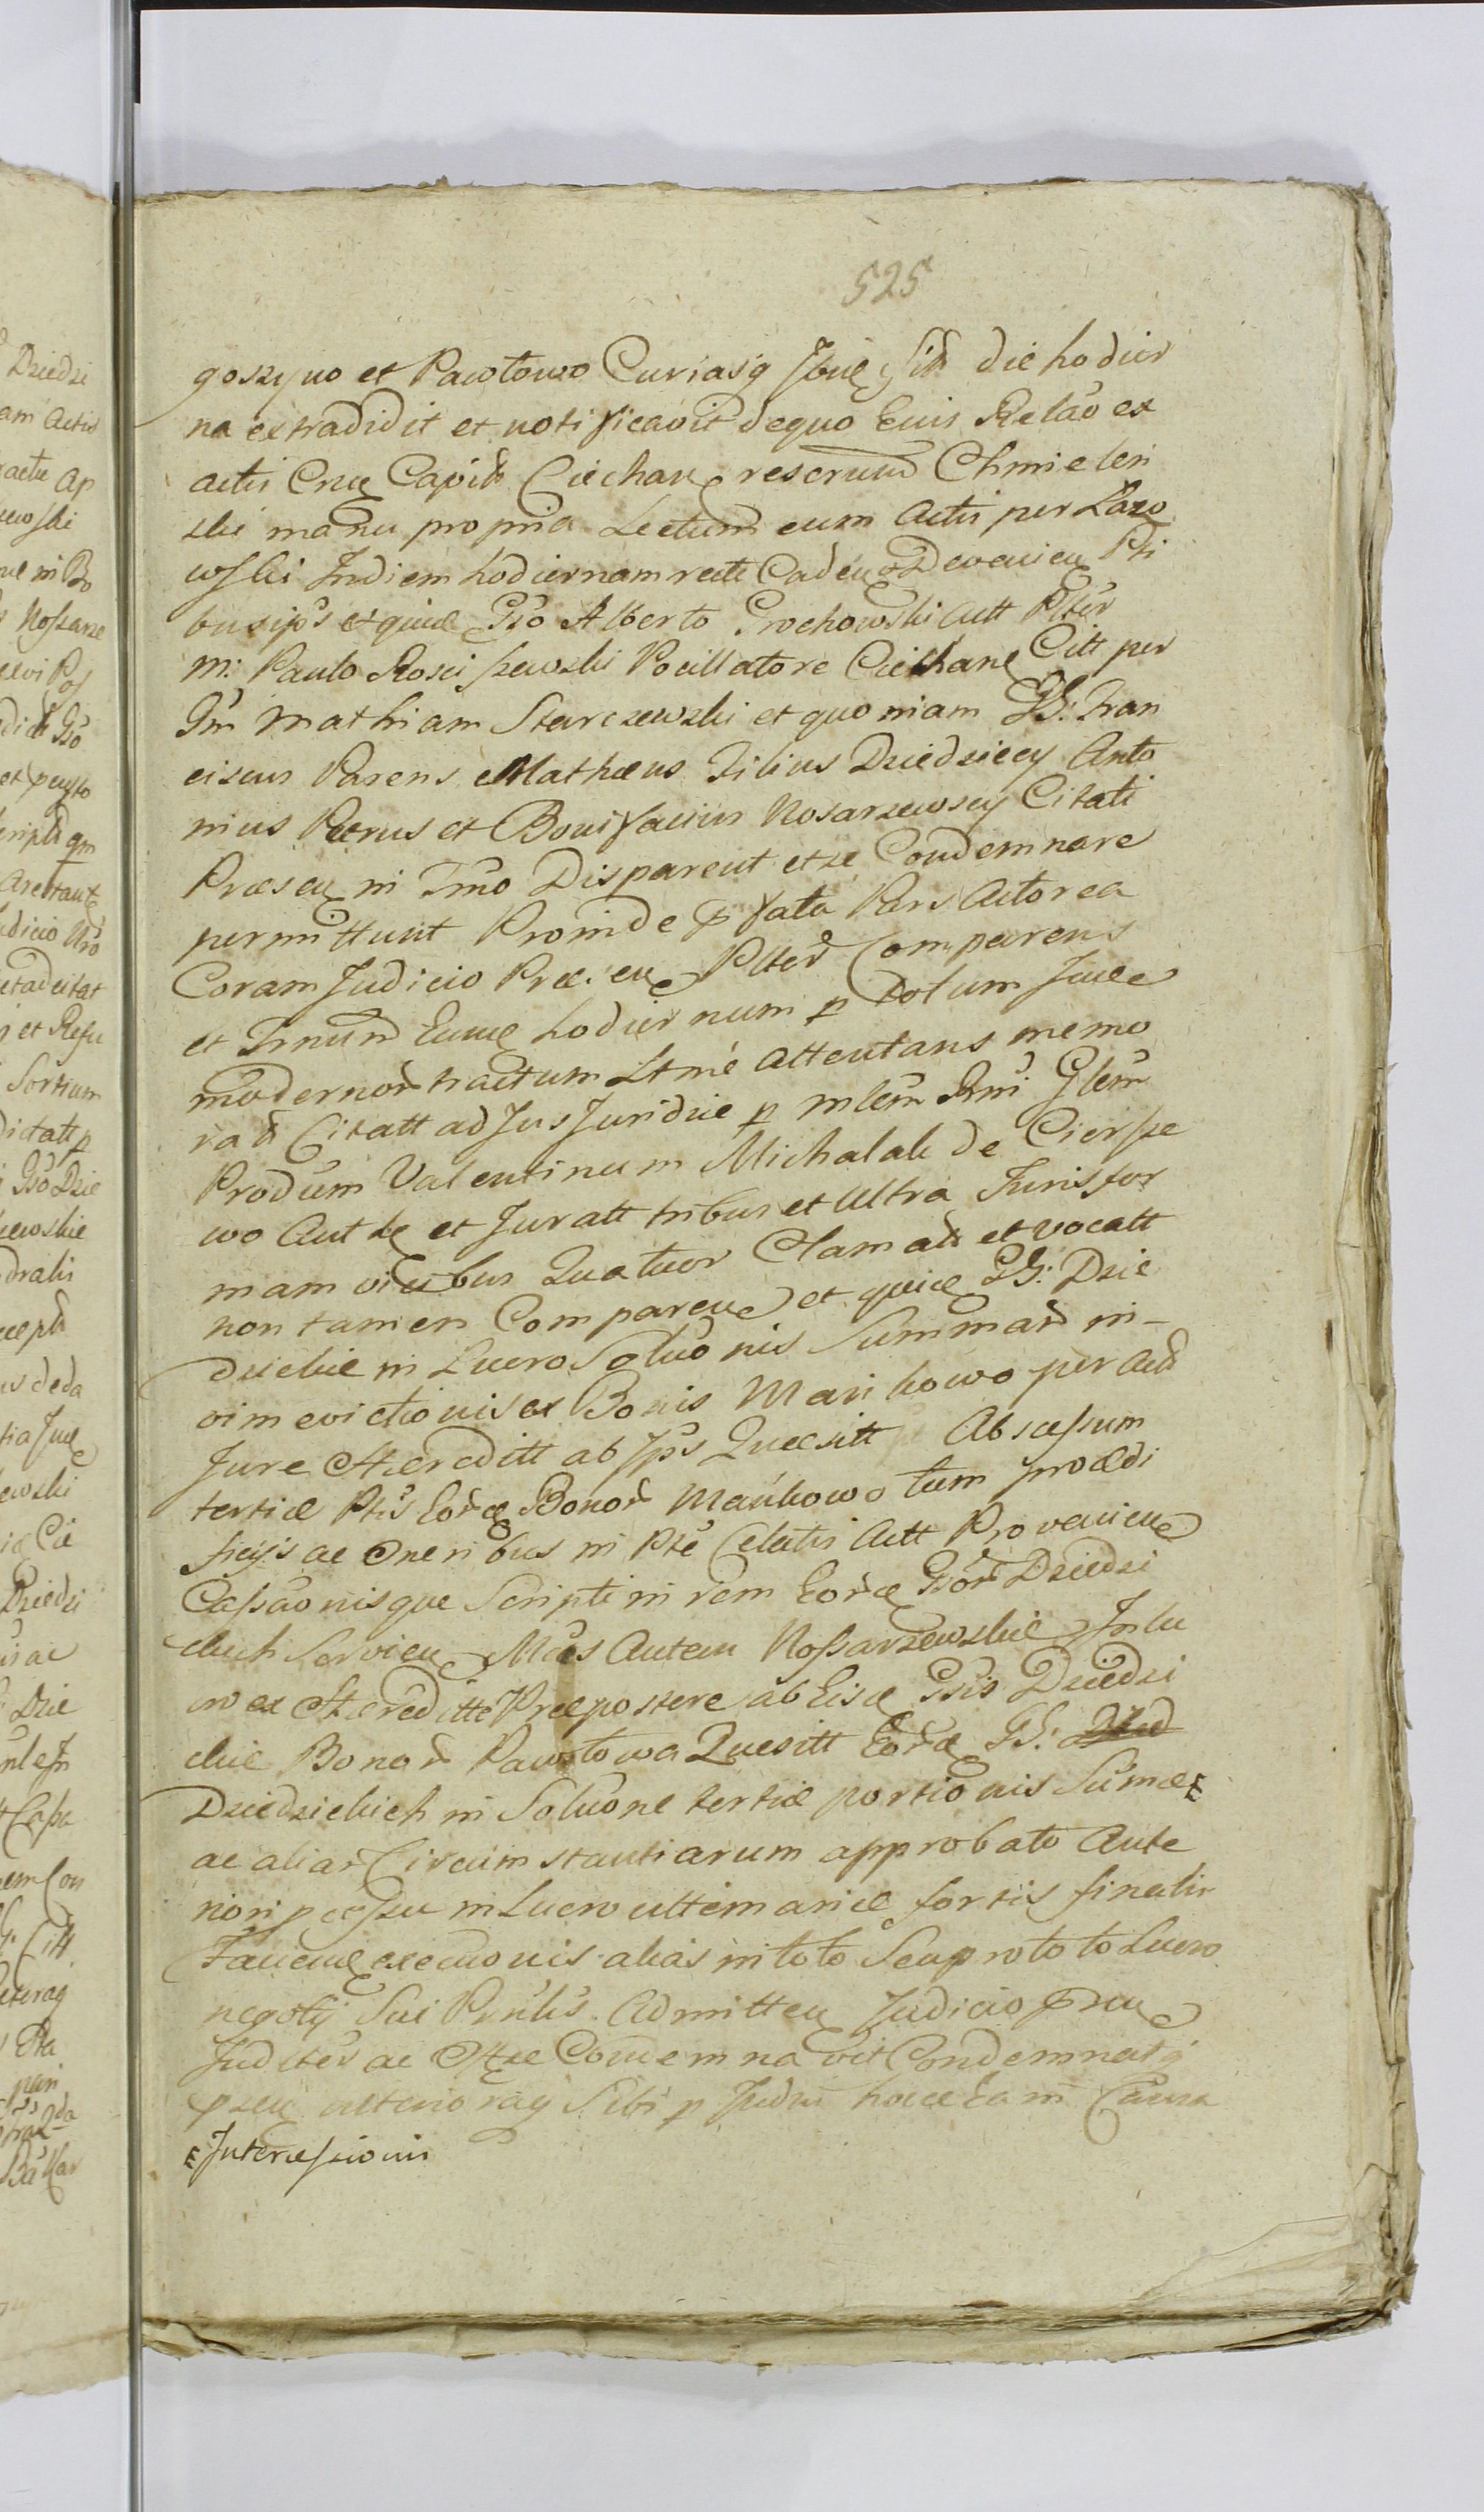 525
goszyno et Pawłowo Curiasq Ibue Sitt die hodier
na extradidit et notificavit dequo Eius Relāo ex
actis Crue Capit Ciechan reserund Chmielen
ski manu propria Lectum cum Actis per Łazo
wski Indiem hodiernam recte Caden Devenien Pti
bus ip̄s et quid Gso Alberto Grochowski Actt Plter
m: Paulo Rosciszewski Pocillatore Ciechane Citt per
Gm Mathiam Starczewski et quoniam GG: Fran
ciscus Parens Mathæus Filius Dziedziccy Anto
nius Petrus et Bonifacius Nosarzewscy Citati
Præsen in Tmo Disparent et se Condemnare
permittunt Proinde p̄fata Pars Actorea
Coram Judicio Præsen Plter Comparens
et Tmum Eume hodiernum p totum Juce
modernor tractum Ltme Attentans memo
rat Citatt ad Jus Juridice p mlem Rmi Glem
Prodm Valentinum Michalak de Cierpe
wo Autte et Juratt tribus et Ultra Juris for
mam vicibus Quatuor Clamatt et vocatt
non tamen Comparen et quid GG: Dzie
dzickie in Lucro Solūonis Summar in-
vim evictionis ex Bonis Mankowo per actt
Jure Hæreditt ab Ip̄s Quæsitt Abscessum
tertiæ Ptis Eorde Bonor Mańkowo tum prædi
ficiis ac Oneribus in Pte Celatis Actt Provenien
Cassāonisque Scripti in rem Eorde Gsor Dziedzi
ckich Servien Mās Autem Nossarzewskie In lu
cro ex Hæreditte Præpostere ab Eisd Gsis Dziedzi
ckie Bonor Pawłowa Quesitt Eord GG:
Dziedzickich in Solūone tertiæ portionis Sūmæ
ac aliar Circumstantiarum approbato Ante
riori p̄cessu in Lucro ultimariæ fortis finalis
Faciend execūonis alias in toto Seu pro toto Lucro
negotij Sui Pn̄tis. Admitten Judicio p̄sen
Juditer ac Condemnavit Condemnatq
p̄sen ulterioraq Sibi p Judm hocce Ea in Causa
Intercessionis